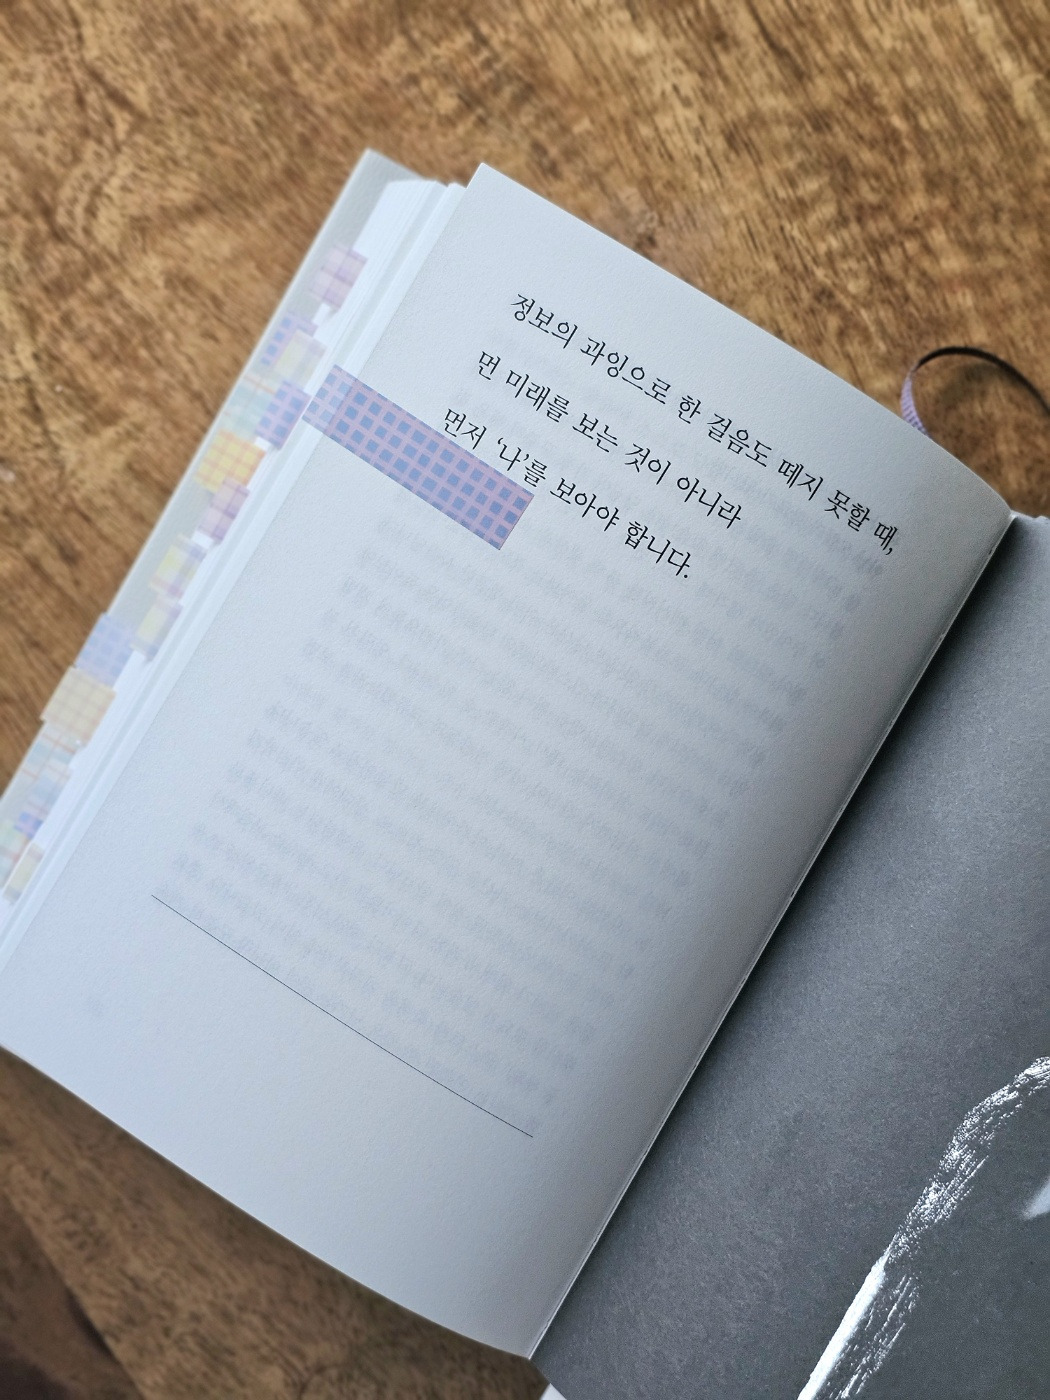 정보의 과잉으로 한 걸음도 떼지 못할 때,
먼 미래를 보는 것이 아니라
먼저 ‘나’를 보아야 합니다.